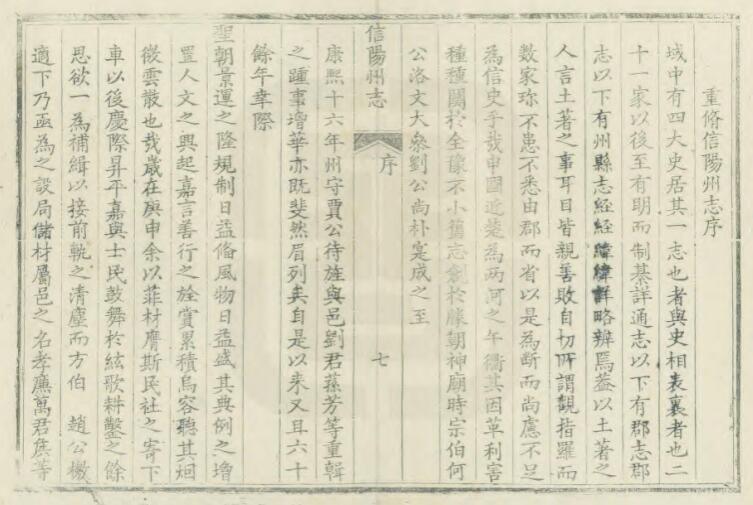 重脩信陽州志序
域中有四大史居其一志也者與史相表裏者也二
十一家以後至有明而制綦詳通志以下有郡志郡
志以下有州縣志經經緯緯詳略辨焉蓋以土著之
人言土著之事耳目皆親善敗自切所謂觀指羅而
数家珎不患不悉由郡而省以是為断而尚慮不足
為信史乎哉申國近楚為兩河之午衢其因革利害
種種關於全豫不小舊志剏於勝朝神廟時宗伯何
公洛文大叅劉公尚朴寔成之至
信陽州志
序
七
康熙十六年州守賈公待旌與邑劉君蓀芳等重輯
之踵事增華亦既斐然眉列矣自是以来又且六十
餘年幸際
聖朝景運之隆規制日益俻風物日益盛其典例之增
置人文之興起嘉言善行之旌賞累積烏容聽其烟
微雲散也哉歲在庚申余以菲材膺斯民社之寄下
車以後慶際昇平嘉與士民鼓舞於絃歌耕鑿之餘
思欲一為補緝以接前軌之清塵而方伯　趙公檄
適下乃亟為之設局儲材屬邑之名孝廉萬君侯等